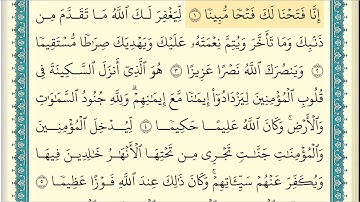 إِنَّا فَتَحْنَا لَكَ فَتْحًا مُّبِينًا ١ لِّيَغْفِرَ لَكَ ٱللَّهُ مَا تَقَدَّمَ مِن
ذَنۢبِكَ وَمَا تَأَخَّرَ وَيُتِمَّ نِعْمَتَهُۥ عَلَيْكَ وَيَهْدِيَكَ صِرَٰطًا مُّسْتَقِيمًا
٢ وَيَنصُرَكَ ٱللَّهُ نَصْرًا عَزِيزًا ٣ هُوَ ٱلَّذِىٓ أَنزَلَ ٱلسَّكِينَةَ فِى
قُلُوبِ ٱلْمُؤْمِنِينَ لِيَزْدَادُوٓا۟ إِيمَٰنًا مَّعَ إِيمَٰنِهِمْ ۗ وَلِلَّهِ جُنُودُ ٱلسَّمَٰوَٰتِ
وَٱلْأَرْضِ ۚ وَكَانَ ٱللَّهُ عَلِيمًا حَكِيمًا ٤ لِّيُدْخِلَ ٱلْمُؤْمِنِينَ
وَٱلْمُؤْمِنَٰتِ جَنَّٰتٍ تَجْرِى مِن تَحْتِهَا ٱلْأَنْهَٰرُ خَٰلِدِينَ فِيهَا
وَيُكَفِّرَ عَنْهُمْ سَيِّـَٔاتِهِمْ ۚ وَكَانَ ذَٰلِكَ عِندَ ٱللَّهِ فَوْزًا عَظِيمًا ٥